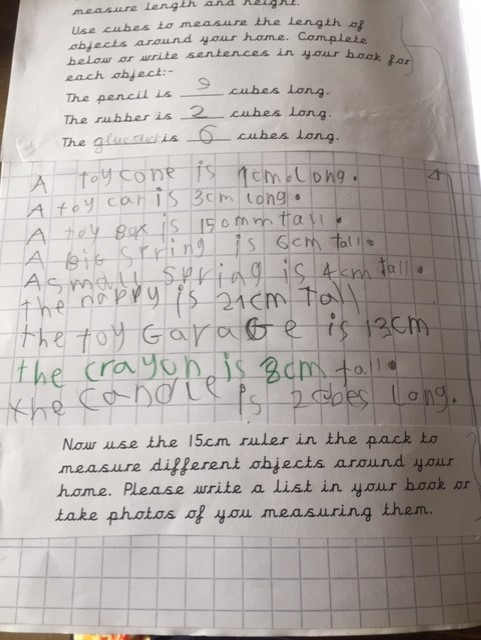 measure length and height.
Use cubes to measure the length of
objects around your home. Complete
below or write sentences in your book for
each object:-
The pencil is 9 cubes long.
The rubber is 2 cubes long.
The is 6 cubes long.
A toy cone is 1cm long.
A toy car is 3cm long.
A toy box is 15 tall.
A big spring is 6cm tall.
A small spring is 4cm tall.
the nappy is 21cm tall
the toy Garage is 13cm
the crayon is 8cm tall.
the candle is 2 cubes long.
Now use the 15cm ruler in the pack to
measure different objects around your
home. Please write a list in your book or
take photos of you measuring them.